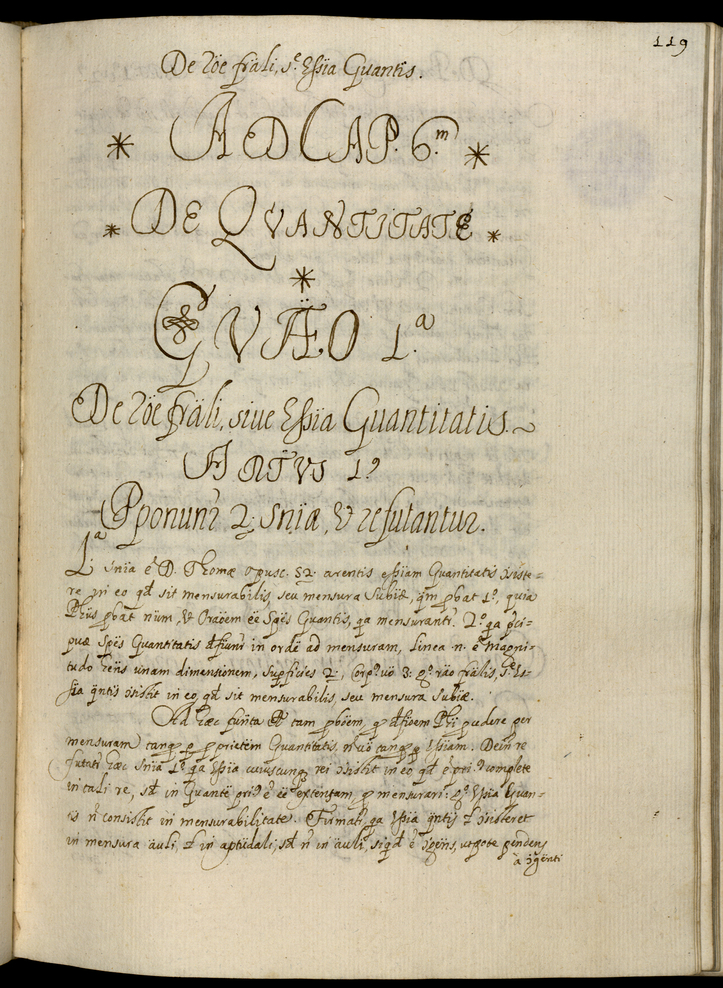 119
De rőe frăli, s.e Essĩa Quantis.
* AD CAP. 6.m *
* DE QVANTITATE *
*
QVÆO 1.a
De rőe frăli, sive Essĩa Quantitatis.
ARTVS 1.9
Pponunr̃ 2. sñiæ, & refutantur.
1.a sñia ẽ D. Thomæ opusc. 52. arentis essĩam Quantitatis ɔsiste=
re in eo qđ sit mensurabilis seu mensura subiæ, qm̃ pbat 1.º, quia
Phũs pbat nũm, & orãoem ẽe spẽs Quantis, qa mensurantr̃. 2.º qa p̃ci-
puæ spẽs Quantitatis dfiunr̃ in ordẽ ad mensuram, linea n. ẽ magni-
tudo hẽns unam dimensionem, supficies 2, corp9 vő 3: g.º rão frãlis, s.e Es-
sĩa q̃ntis ɔsistit in eo, qđ sit mensurabilis, seu mensura subiæ.
Ad hæc funta tam pbõem, q dfioem Phi pcedere per
mensuram tanq̃ p pprietẽm Quantitatis, ñ vő tanq̃ p Essĩam. Dein re
futatr̃ hæc sñia 1.º qa Essĩa cuiuscunq rei ɔsistit in eo qđ ẽ pri.º complete
in tali re, sđ in Quante pri.º ẽ ẽe extentam q mensurarr̃: g.º Essĩa Quan-
is ñ consistit in mensurabilitate. Firmatr̃, qa Essĩa q̃ntis ɫ ɔsisteret
in mensura ãuli, ɫ in aptidali; sđ ñ in ãuli, siqđ ẽ ɔgẽns, utpote pendens
a ɔtĩgenti